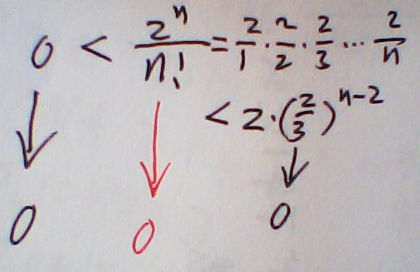 0 < 2ⁿ/n! = 2/1 · 2/2 · 2/3 ... 2/n
< 2 · (2/3)ⁿ⁻²
↓ ↓ ↓
0 0 0